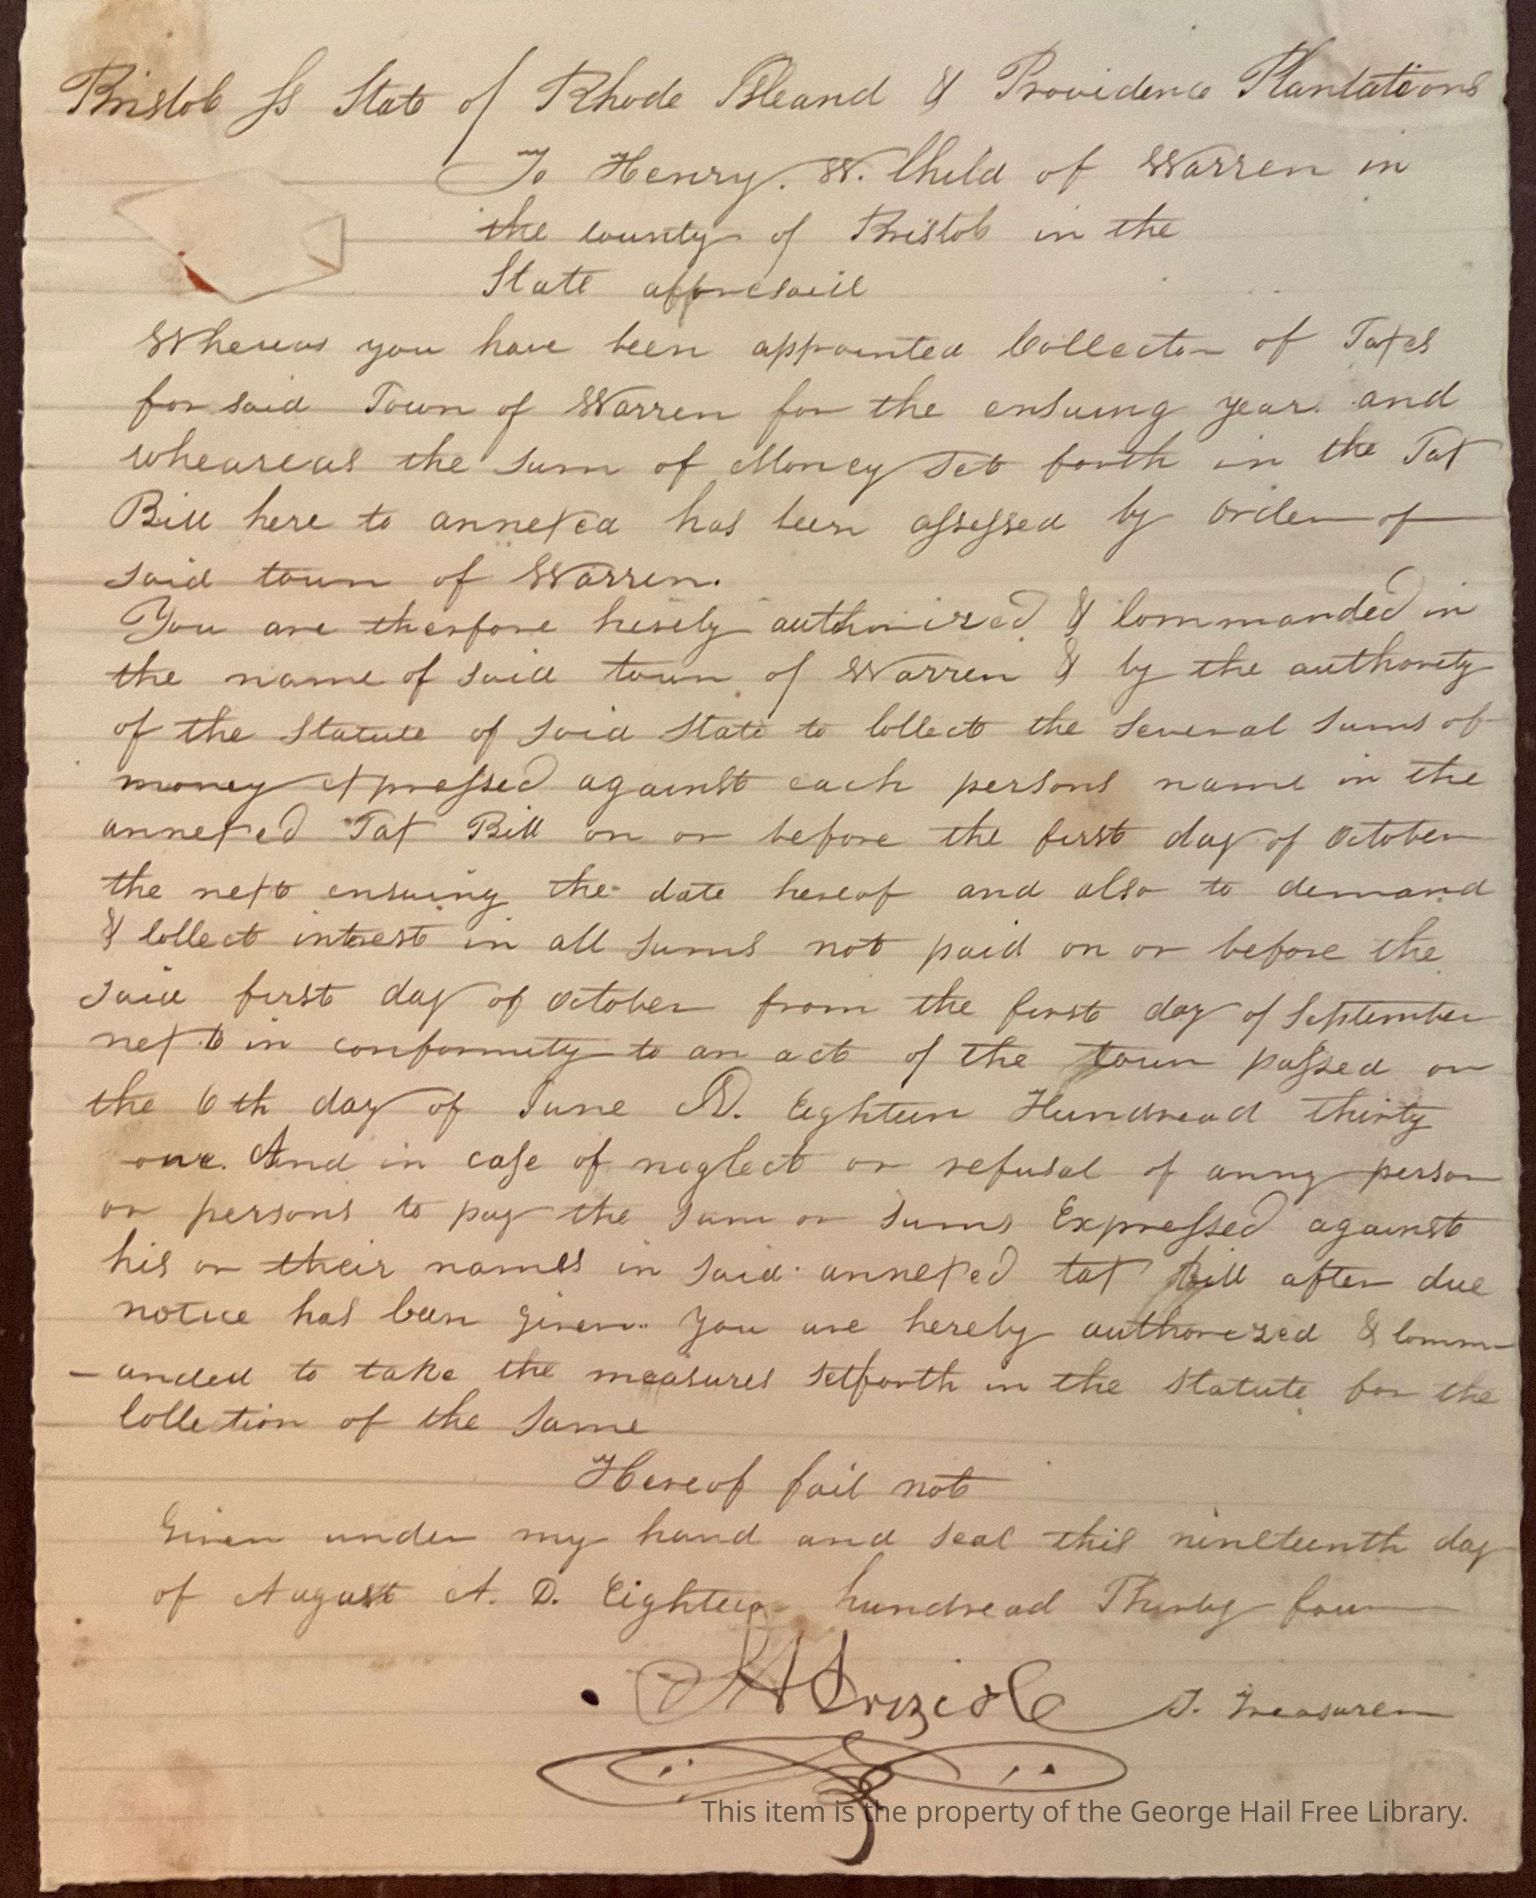 Bristol Ss State of Rhode Island & Providence Plantations
To Henry. W. Child of Warren in
the county of Bristol in the
State afforesaid
Whereas you have been appointed Collector of Taxes
for said Town of Warren for the ensuing year. and
wheareas the sum of Money set forth in the Tax
Bill here to annexed has been assessed by order of
said town of Warren.
You are therfore hereby authorized & Commanded in
the name of said town of Warren & by the authority
of the Statute of said State to Collect the several sums of
money expressed against each persons name in the
annexed Tax Bill on or before the first day of October
the next ensuing the date hereof and also to demand
& Collect intrest in all sums not paid on or before the
said first day of October from the first day of September
next in conformity to an act of the town passed on
the 6th day of June AD. Eighteen Hundread thirty
one. And in case of neglect or refusal of anny person
or persons to pay the sum or sums Expressed against
his or their names in said annexed tax Bill after due
notice has been given. You are hereby authorezed & Comm-
-anded to take the measures setforth in the Statute for the
Colletion of the same
Hereof fail not
Given under my hand and seal this nineteenth day
of August A. D. Eighteen hundread Thirty four
T. Treasurer
This item is the property of the George Hail Free Library.